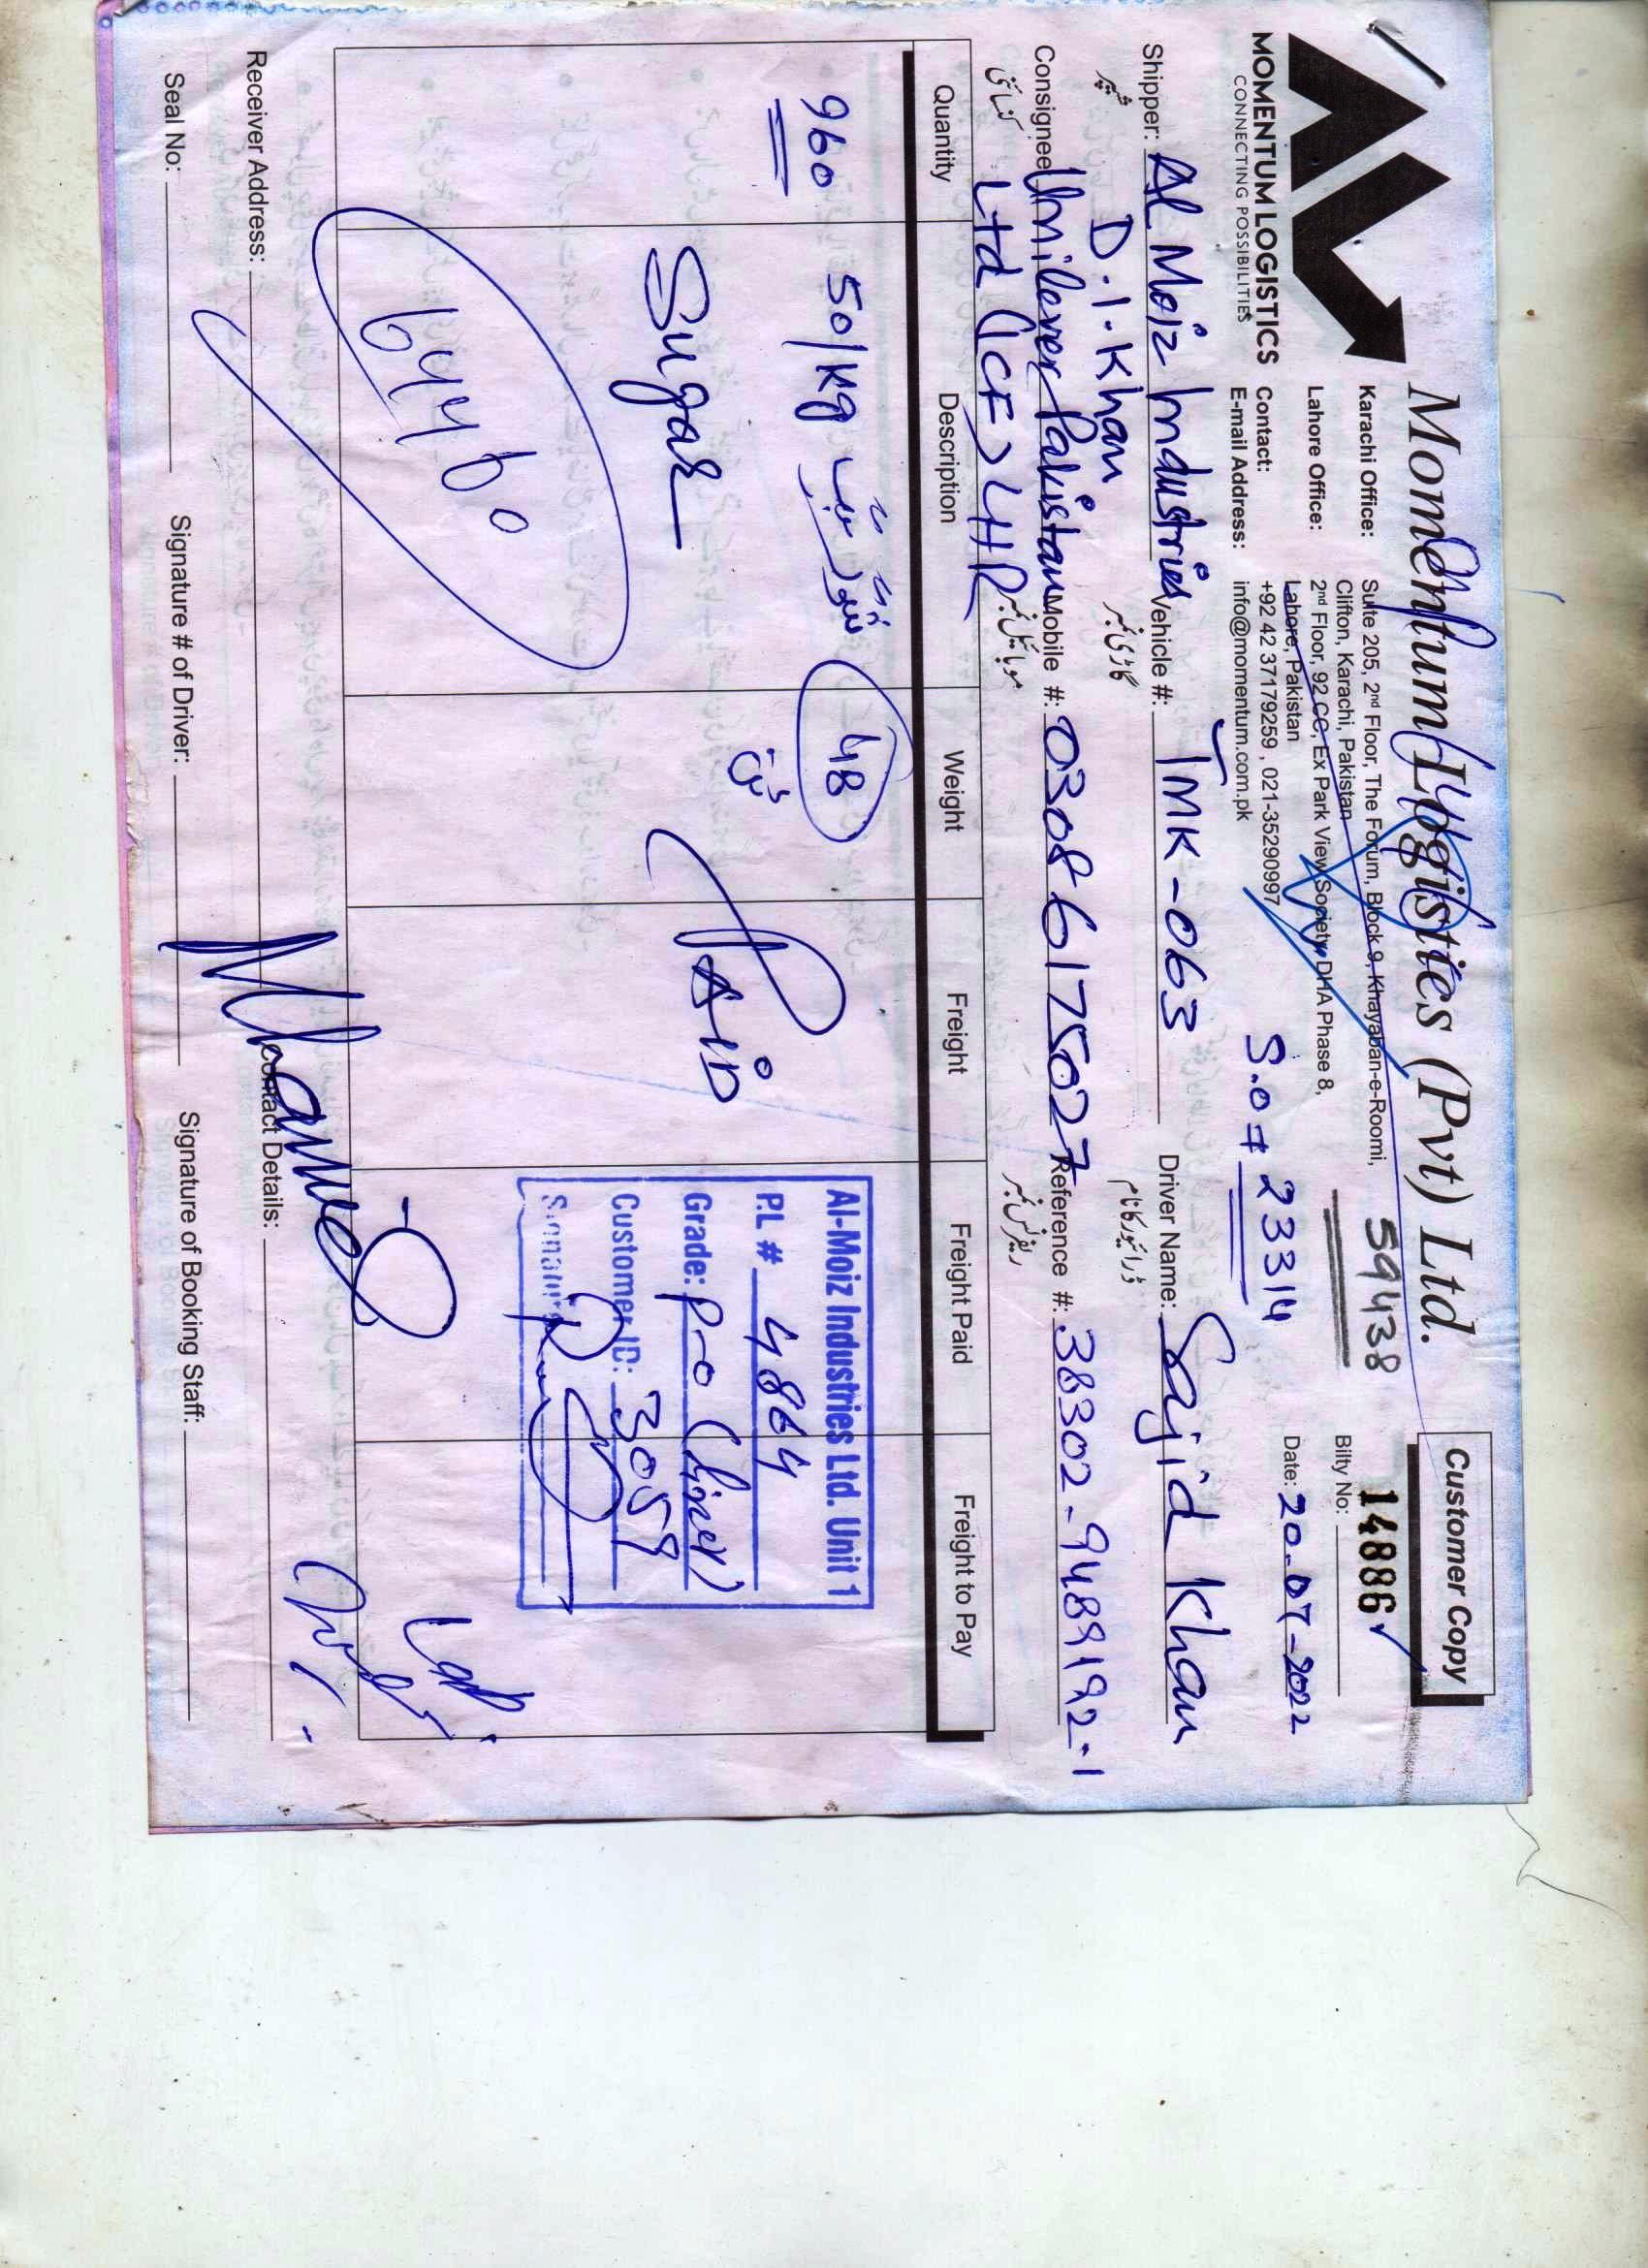 Momentum Logistics (Pvt) Ltd.
Customer Copy
MOMENTUM LOGISTICS
CONNECTING POSSIBILITIES
Karachi Office: Suite 205, 2nd Floor, The Forum, Block 9, Khayaban-e-Roomi,
Clifton, Karachi, Pakistan
Lahore Office: 2nd Floor, 92 CC, Ex Park View Society, DHA Phase 8,
Lahore, Pakistan
Contact: +92 42 37179259 , 021-35290997
E-mail Address: info@momentum.com.pk
594438
S.O # 23314
14886
Bilty No:
Date: 20-07-2022
Shipper: Al Moiz Industries Vehicle #: TMK-063 Driver Name: Sajid Khan
شپر گاڑی نمبر ڈرائیور کا نام
D.I.Khan
Consignee: Unilever Pakistan Mobile #: 03086175027 Reference #: 38302-9489192-1
کنسائنی موبائیل نمبر ریفرنس نمبر
Ltd (ICF) LHR
Quantity Description Weight Freight Freight Paid Freight to Pay
960 50/Kg 48
ٹن
Sugar PAID
64460
Al-Moiz Industries Ltd. Unit 1
P.L # 4864
Grade: P-0
Customer ID: 3059
Signature
Receiver Address: Contact Details:
Seal No: Signature # of Driver: Signature of Booking Staff: